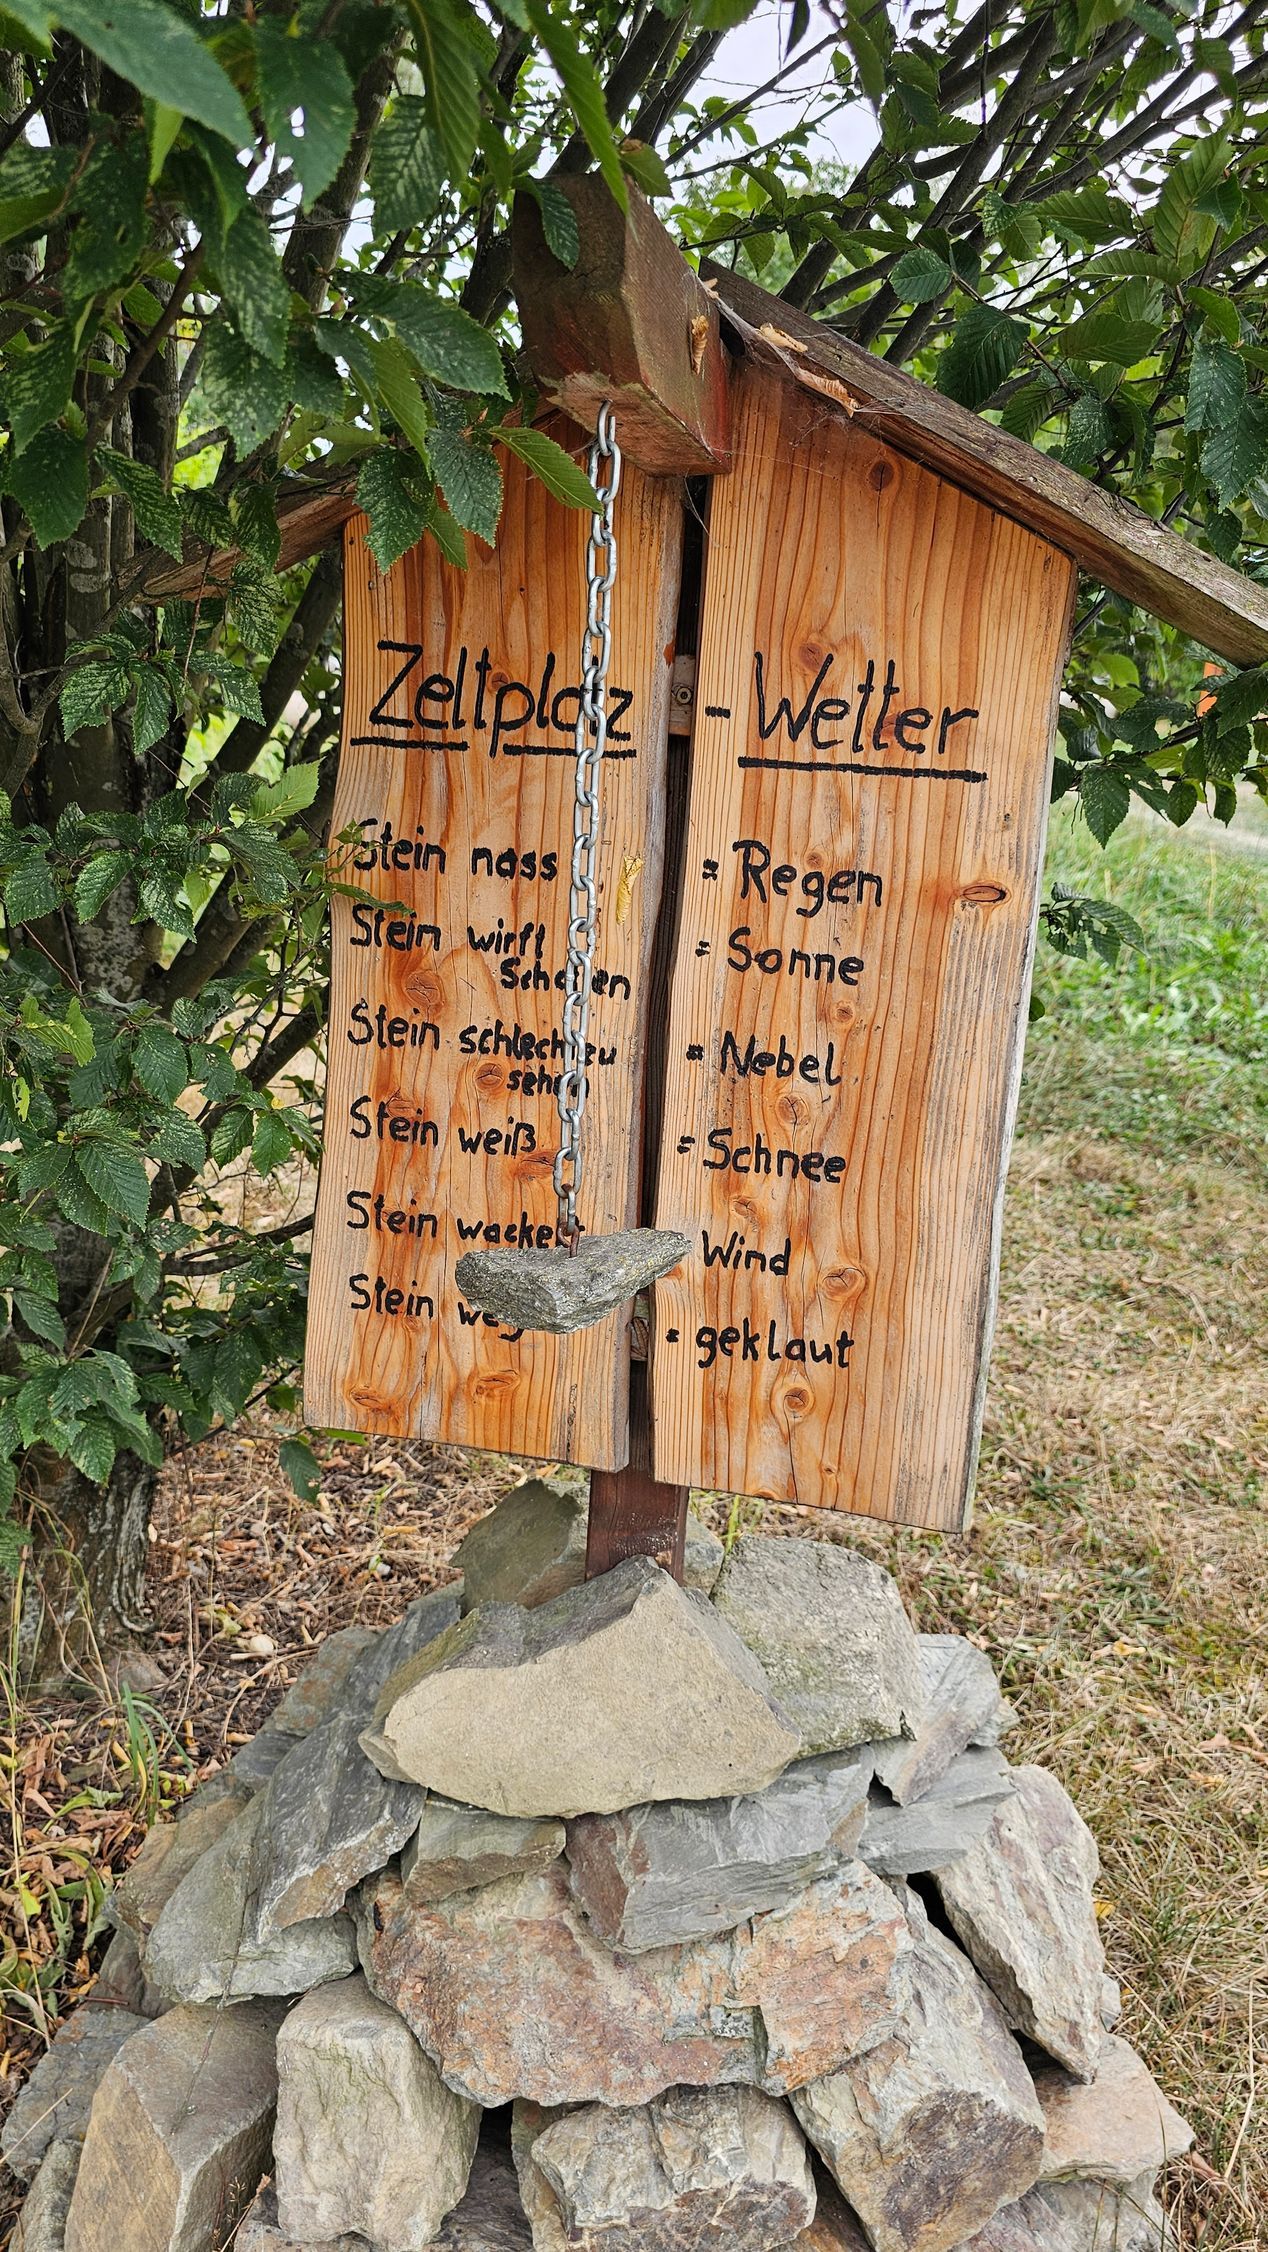 Zeltplatz - Wetter
Stein nass = Regen
Stein wirft = Sonne
Schatten
Stein schlecht zu = Nebel
sehen
Stein weiß = Schnee
Stein wackelt Wind
Stein weg = geklaut